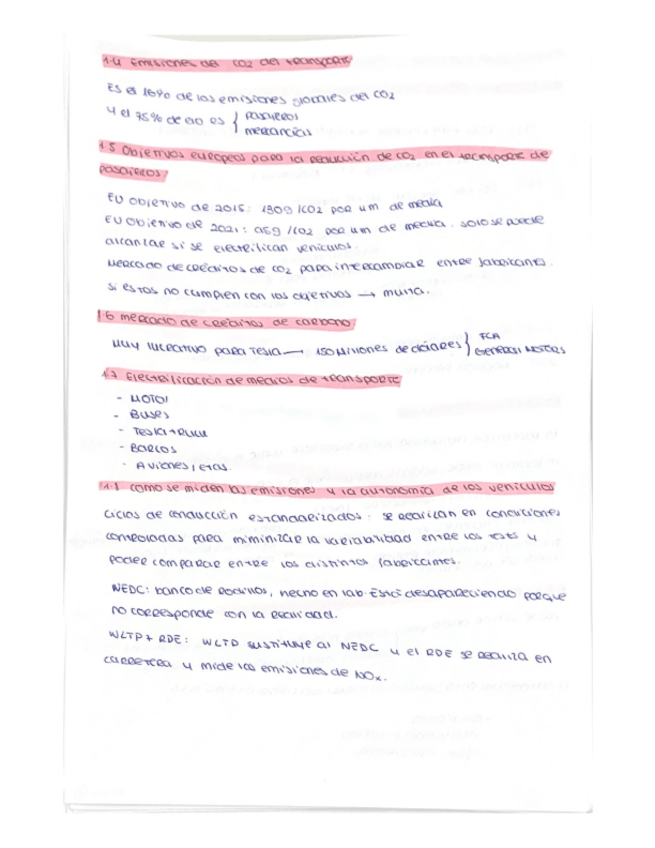 1.4 Emisiones del CO2 del transporte
Es el 16% de las emisiones globales del CO2
y el 75% de ello es { pasajeros
mercancías
1.5 Objetivos europeos para la reducción de CO2 en el transporte de
pasajeros
EU objetivo de 2015: 130g/CO2 por km de media
EU objetivo de 2021: g/CO2 por km de media. solo se puede
alcanzar si se electrifican vehículos.
Mercado de créditos de CO2 para intercambiar entre fabricantes.
Si estos no cumplen con los objetivos → multa.
1.6 mercado de créditos de carbono
Muy lucrativo para Tesla → 150 Millones de dólares } FCA
General Motors
1.7 Electrificación de medios de transporte
- Motos
- Buses
- Tesla truck
- Barcos
- Aviones, etc.
1.8 como se miden las emisiones y la autonomía de los vehículos
Ciclos de conducción estandarizados: se realizan en condiciones
controladas para miminizar la variabilidad entre los tests y
poder comparar entre los distintos fabricantes.
NEDC: banco de rodillos, hecho en lab. Está desapareciendo porque
no corresponde con la realidad.
WLTP + RDE: WLTP sustituye al NEDC y el RDE se realiza en
carretera y mide las emisiones de NOx.